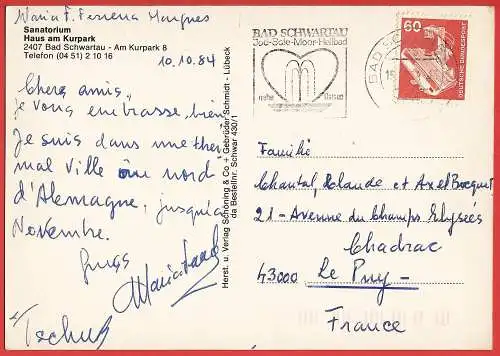 Maria F. Ferreira Marques
Sanatorium
Haus am Kurpark
2407 Bad Schwartau - Am Kurpark 8
Telefon (04 51) 2 10 16
10.10.84
Chers amis,
je vous embrasse bien
Je suis dans une ther
mal ville au nord
d'Alemagne, jusqu'à
Novembre.
Maria
Tschuß
Herst. u. Verlag Schöning & Co + Gebrüder Schmidt - Lübeck
da Bestellnr. Schwar 430/1
BAD SCHWARTAU
Jod-Sole-Moor-Heilbad
nahe Ostsee
BAD SC
15
60
DEUTSCHE BUNDESPOST
Familie
Chantal, Rolande et Axel Bocquet
21 - Avenue du Champs Elysées
Chadrac
43000 Le Puy -
France